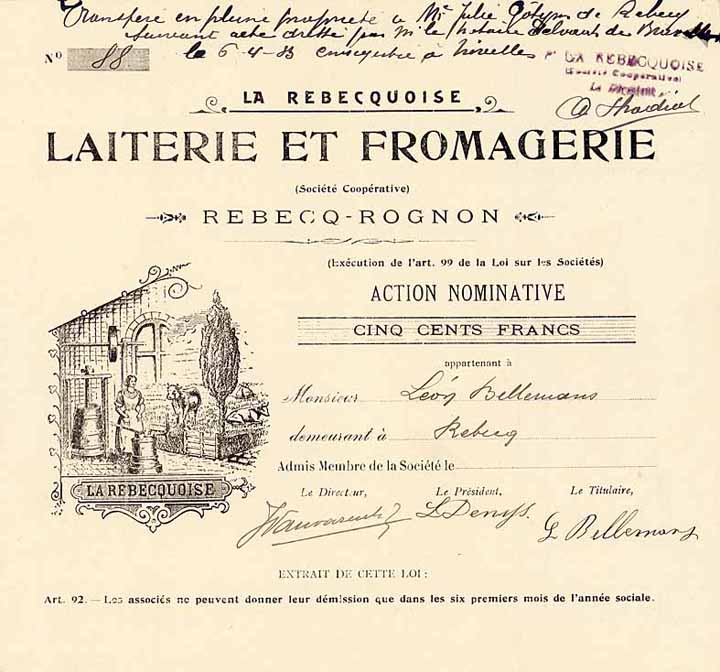 Transféré en pleine propriété à Mr Julie de Rebecq
suivant acte dressé par Mr le Notaire Delvaux de Bruxelles
le 6-4-33 enregistré à Nivelles
No 88
LA REBECQUOISE
(Société Coopérative)
Le Président,
LA REBECQUOISE
LAITERIE ET FROMAGERIE
(Société Coopérative)
REBECQ-ROGNON
(Exécution de l'art. 99 de la Loi sur les Sociétés)
ACTION NOMINATIVE
CINQ CENTS FRANCS
appartenant à
Monsieur Léon Bellemans
demeurant à Rebecq
Admis Membre de la Société le
Le Directeur, Le Président, Le Titulaire,
L Denys. L Bellemans
LA REBECQUOISE
EXTRAIT DE CETTE LOI :
Art. 92. — Les associés ne peuvent donner leur démission que dans les six premiers mois de l'année sociale.